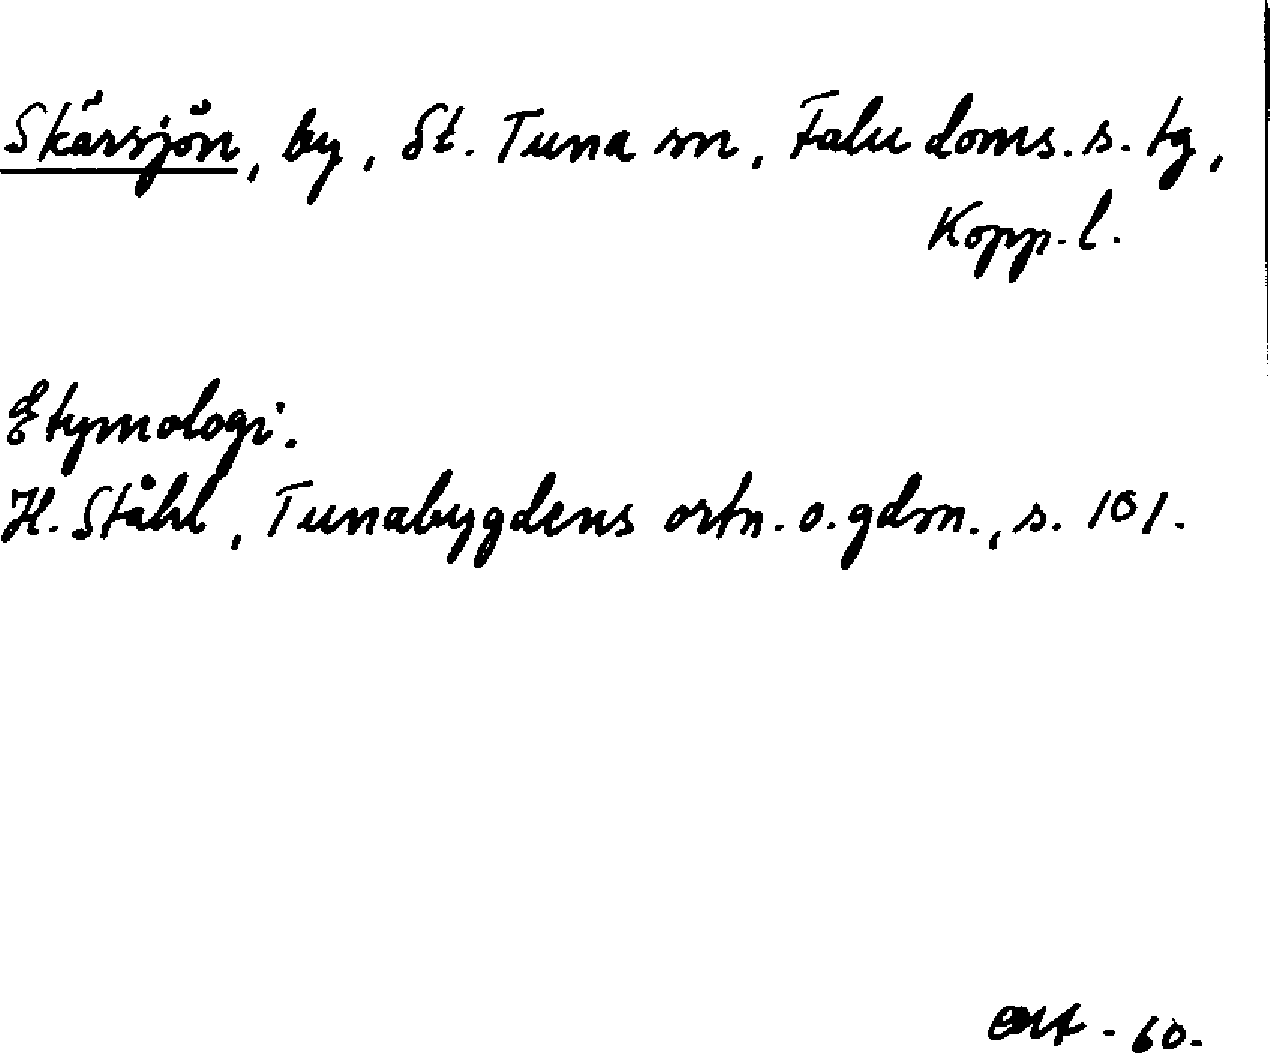 Skärsjön, by, St. Tuna sn, Falu doms. s. tg,
Kopp. l.
Etymologi.
H. Ståhl, Tunabygdens ortn. o. gdsn., s. 101.
- 60.